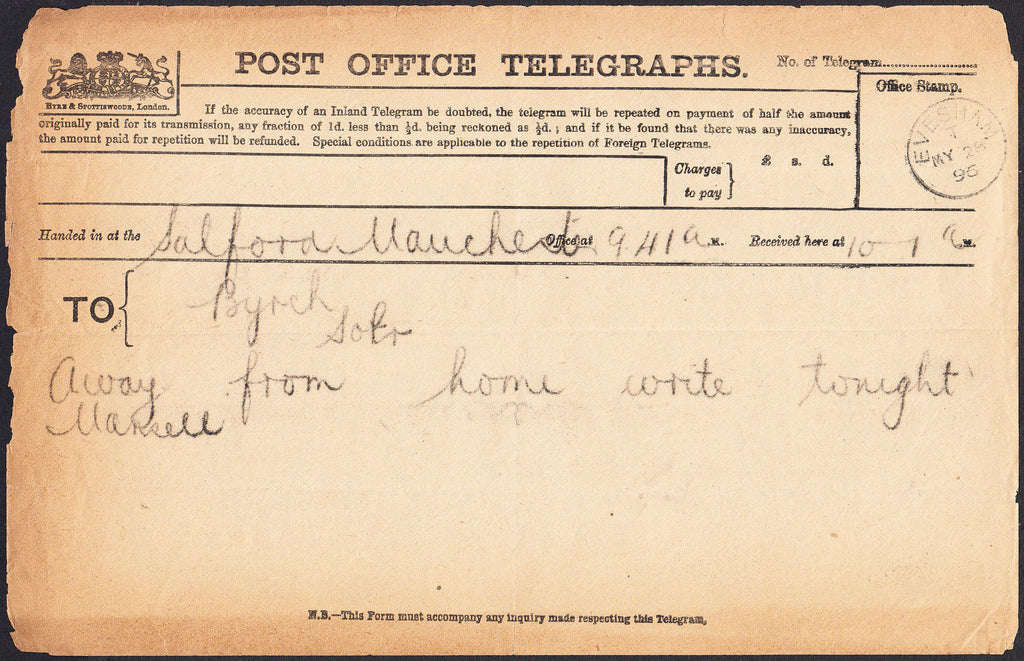 POST OFFICE TELEGRAPHS.
No. of Telegram
EYRE & SPOTTISWOODE, London.
Office Stamp.
If the accuracy of an Inland Telegram be doubted, the telegram will be repeated on payment of half the amount
originally paid for its transmission, any fraction of 1d. less than ½d. being reckoned as ½d.; and if it be found that there was any inaccuracy,
the amount paid for repetition will be refunded. Special conditions are applicable to the repetition of Foreign Telegrams.
EVESHAM
MY 28
96
Charges
to pay
£ s. d.
Handed in at the Salford Manchestr Office at 9 41 a M. Received here at 10-1 a M.
TO Byrch
Solr
Away from home write tonight
Mansell
N.B.—This Form must accompany any inquiry made respecting this Telegram.